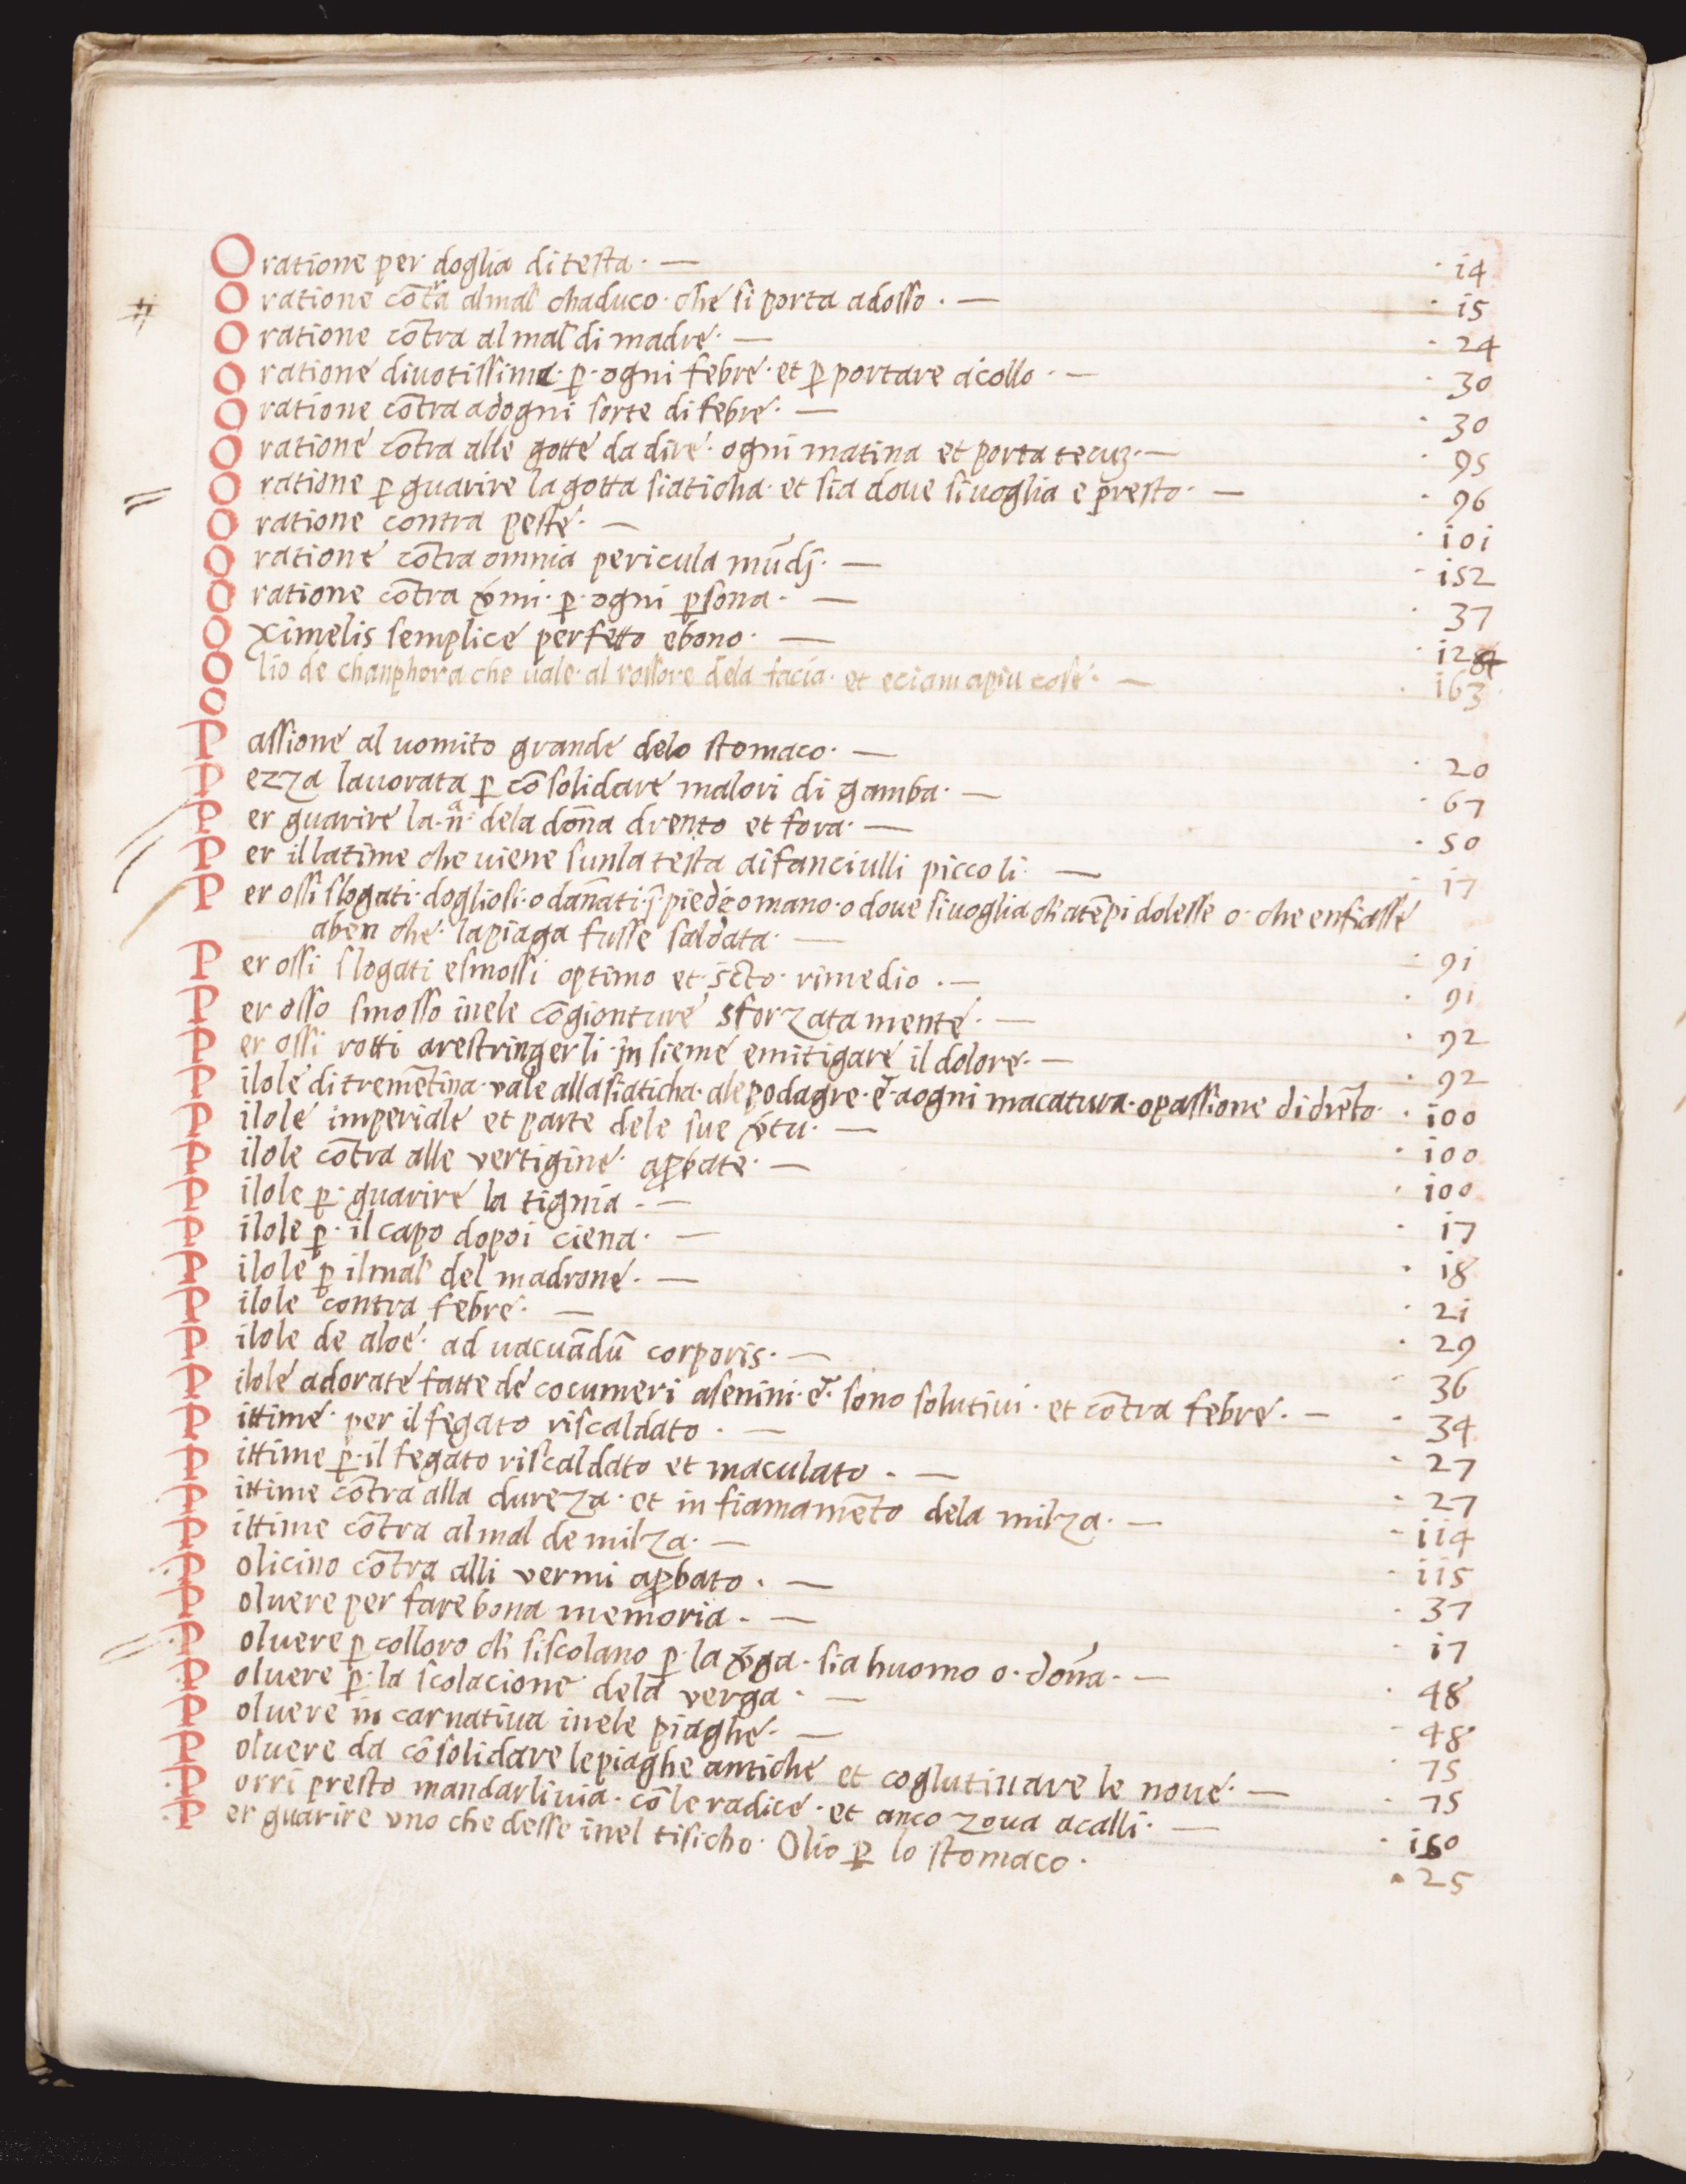 Oratione per doglia di testa · — · 14
Oratione cõtra al mal chaduco · che si porta adosso · — · 15
Oratione cõtra al mal di madre · — · 24
Oratione divotissima · p · ogni febre · et p portare acollo · — · 30
Oratione cõtra adogni sorte di febre · — · 30
Oratione cõtra alle gotte da dire · ogni matina et porta tecuz · — · 95
Oratione p guarire la gotta siaticha · et sia dove si voglia e presto · — · 96
Oratione contra peste · — · 101
Oratione cõtra omnia pericula mũdj · — · 152
Oratione cõtra v̄mi · p · ogni psona · — · 37
Oximelis semplice perfetto ebono · — · 128
Olio de chanphora che vale · al rossore dela facia · et eciam apiu cose · — · 163
O
Passione al vomito grande delo stomaco · — · 20
Pezza lavorata p cõsolidare malori di gamba · — · 67
Per guarire la · nᵃ · dela dõna drento et fora · — · 50
Per il latime che viene sunla testa ai fanciulli piccoli · — · 17
Per ossi slogati · dogliosi · o dañati · ĩ · piede o mano · o dove si voglia ch' atẽpi dolesse o · che enfiasse
aben che · la piaga fusse saldata · — · 91
Per ossi slogati esmossi optimo et · s̄cto · rimedio · — · 91
Per osso smosso inele cõgionture sforzatamente · — · 92
Per ossi rotti arestringerli · insieme emitigare il dolore · — · 92
Pilole di tremẽtina · vale alla siaticha · ale podagre · et · aogni macatura · opassione di drẽto · · 100
Pilole imperiale et parte dele sue v̄tu · — · 100
Pilole cõtra alle vertigine · apbate · — · 100
Pilole p · guarire la tignia · — · 17
Pilole p · il capo dopoi ciena · — · 18
Pilole p il mal del madrone · — · 21
Pilole contra febre · — · 29
Pilole de aloe · ad vacuãdũ corporis · — · 36
Pilole adorate fatte de cocumeri asenini · et · sono solutivi · et cõtra febre · — · 34
Pittime · per il fegato riscaldato · — · 27
Pittime p · il fegato riscaldato et maculato · — · 27
Pittime cõtra alla dureza · et infiamamẽto dela milza · — · 114
Pittime cõtra al mal de milza · — · 115
Policino cõtra alli vermi apbato · — · 37
Polvere per fare bona memoria · — · 17
Polvere p colloro ch' si scolano p · la v̄ga · sia huomo o · dõna · — · 48
Polvere p · la scolacione dela verga · — · 48
Polvere incarnativa inele piaghe · — · 75
Polvere da cõsolidare le piaghe antiche et coglutinare le nove · — · 75
Porri presto mandarli via · cõ le radice · et anco zova acalli · — · 150
Per guarire uno che desse inel tisicho · Olio p lo stomaco · · 25